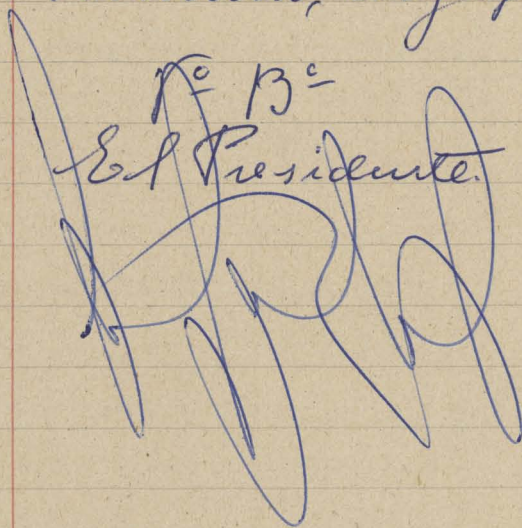 Vº Bº
El Presidente.